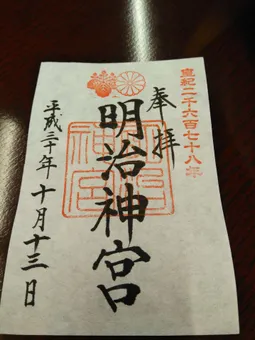 皇紀二千六百七十八年
奉拝
明治神宮
明治神宮
平成三十年十月十三日